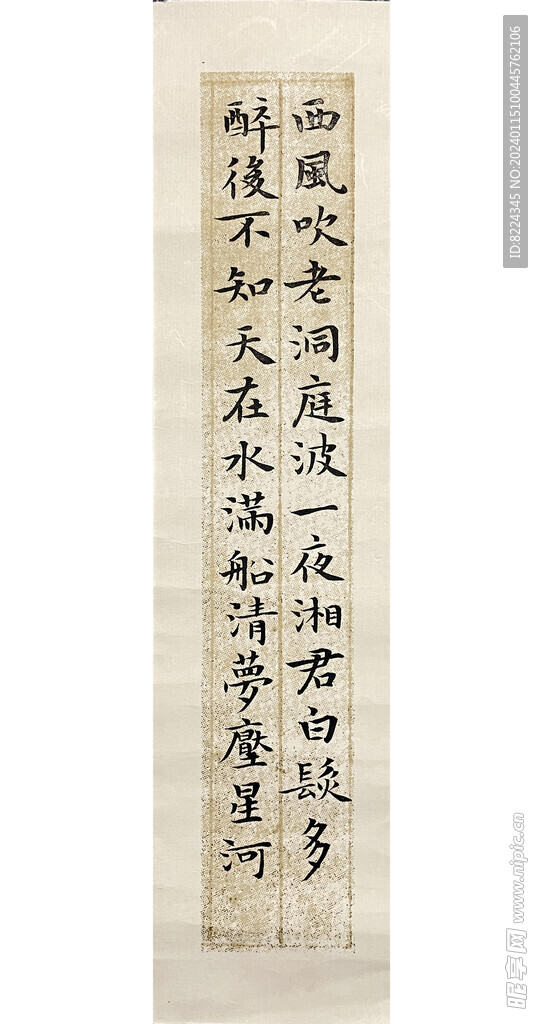 西風吹老洞庭波一夜湘君白髮多
醉後不知天在水滿船清夢壓星河
ID:8224345 NO:20240115100445762106
昵享网 www.nipic.cn